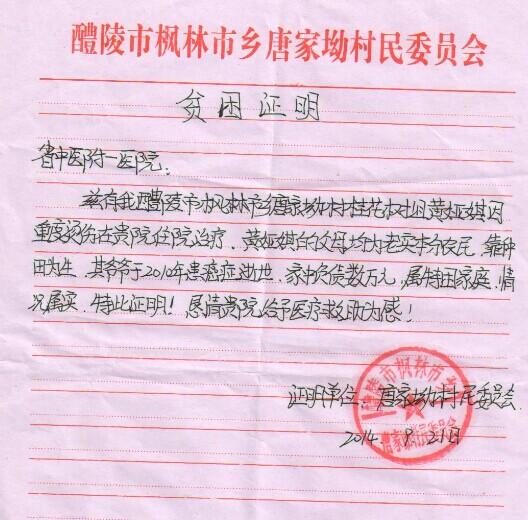 醴陵市枫林市乡唐家坳村民委员会
贫困证明
省中医附一医院:
兹有我醴陵市枫林市乡唐家坳村桂花树组黄娅娸因
重度烫伤在贵院住院治疗。黄娅娸的父母均为老实本分农民,靠种
田为生。其爷爷于2010年患癌症逝世,家中负债数万元,属特困家庭。情
况属实。特此证明!恳请贵院给予医疗救助为感!
证明单位:唐家坳村民委员会
2014.9.21日
醴陵市枫林市乡
唐家坳村民委员会